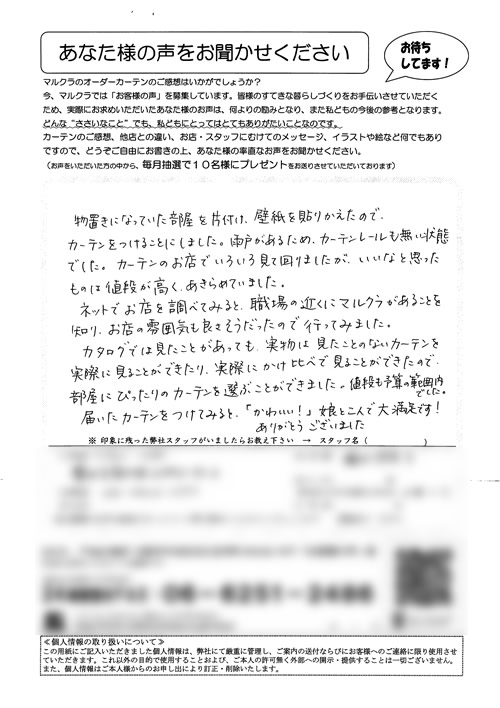 あなた様の声をお聞かせください
お待ち
してます！
マルクラのオーダーカーテンのご感想はいかがでしょうか？
今、マルクラでは「お客様の声」を募集しています。皆様のすてきな暮らしづくりをお手伝いさせていただく
ため、実際にお求めいただいたあなた様のお声は、何よりの励みとなり、また私どもの今後の参考となります。
どんな“ささいなこと”でも、私どもにとってはとてもありがたいことなのです。
カーテンのご感想、他店との違い、お店・スタッフにむけてのメッセージ、イラストや絵など何でもあり
ですので、どうぞご自由にお書きの上、あなた様の率直なお声をお聞かせください。
（お声をいただいた方の中から、毎月抽選で１０名様にプレゼントをお送りさせていただいております）
物置きになっていた部屋を片付け、壁紙を貼りかえたので、
カーテンをつけることにしました。雨戸があるため、カーテンレールも無い状態
でした。カーテンのお店でいろいろ見て回りましたが、いいなと思った
ものは値段が高く、あきらめていました。
ネットでお店を調べてみると、職場の近くにマルクラがあることを
知り、お店の雰囲気も良さそうだったので行ってみました。
カタログでは見たことがあっても、実物は見たことのないカーテンを
実際に見ることができたり、実際にかけ比べて見ることができたので、
部屋にぴったりのカーテンを選ぶことができました。値段も予算の範囲内
でした。
届いたカーテンをつけてみると、「かわいい！」娘と二人で大満足です！
ありがとうございました
※ 印象に残った弊社スタッフがいましたらお教え下さい → スタッフ名（　　　　　　）
06-6251-2486
≪個人情報の取り扱いについて≫
この用紙にご記入いただきました個人情報は、弊社にて厳重に管理し、ご案内の送付ならびにお客様へのご連絡に限り使用させ
ていただきます。これ以外の目的で使用することおよび、ご本人の許可無く外部への開示・提供することは一切ございません。
また、個人情報はご本人様からのお申し出により訂正・削除いたします。